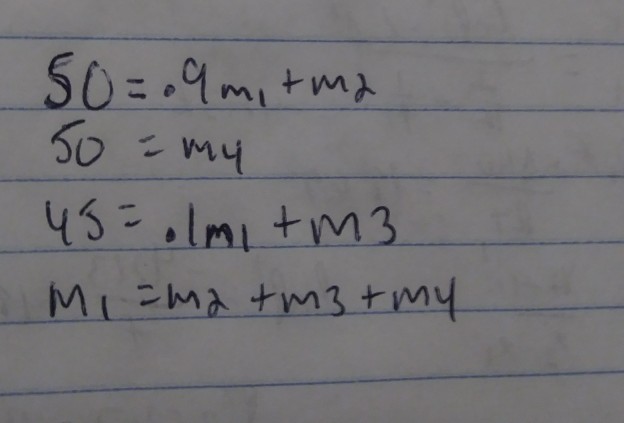 50 = .9m₁ + m2
50 = m4
45 = .1m₁ + m3
m₁ = m2 + m3 + m4